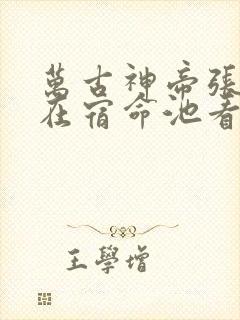 萬古神帝張
在宿命池看
王學增